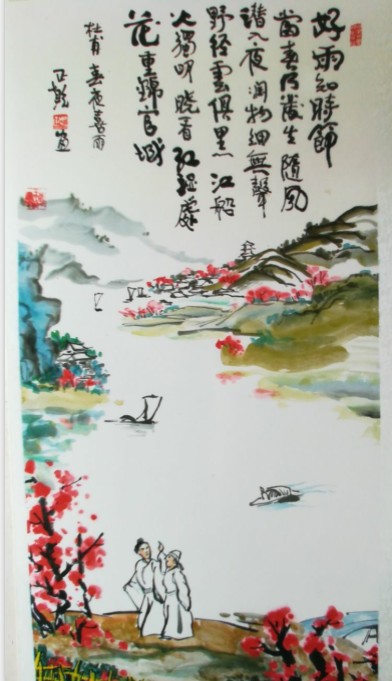 好雨知時節
當春乃發生隨風
潛入夜潤物細無聲
野徑雲俱黑江船
火獨明曉看紅濕處
花重錦官城
杜甫 春夜喜雨